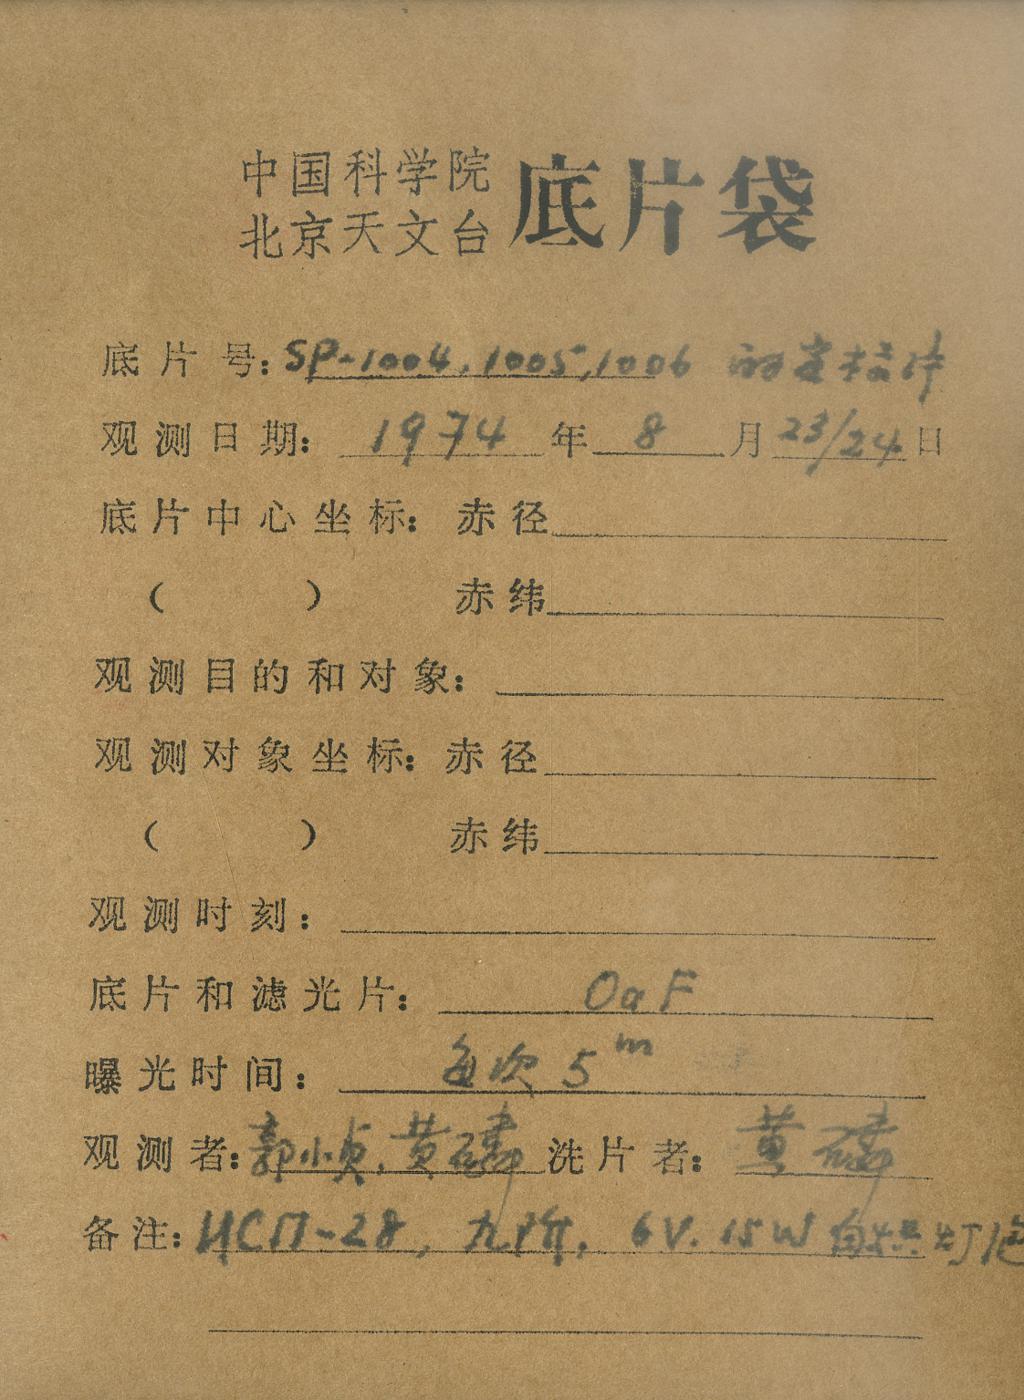 中国科学院
北京天文台
底片袋
底片号：SP-1004，1005，1006 的定标片
观测日期：1974年8月23/24日
底片中心坐标：赤径
（ ） 赤纬
观测目的和对象：
观测对象坐标：赤径
（ ） 赤纬
观测时刻：
底片和滤光片：OaF
曝光时间：每次 5m
观测者：郭小贞，黄磷 洗片者：黄磷
备注：ИСП-28，九阶，6V.15W 白炽灯泡